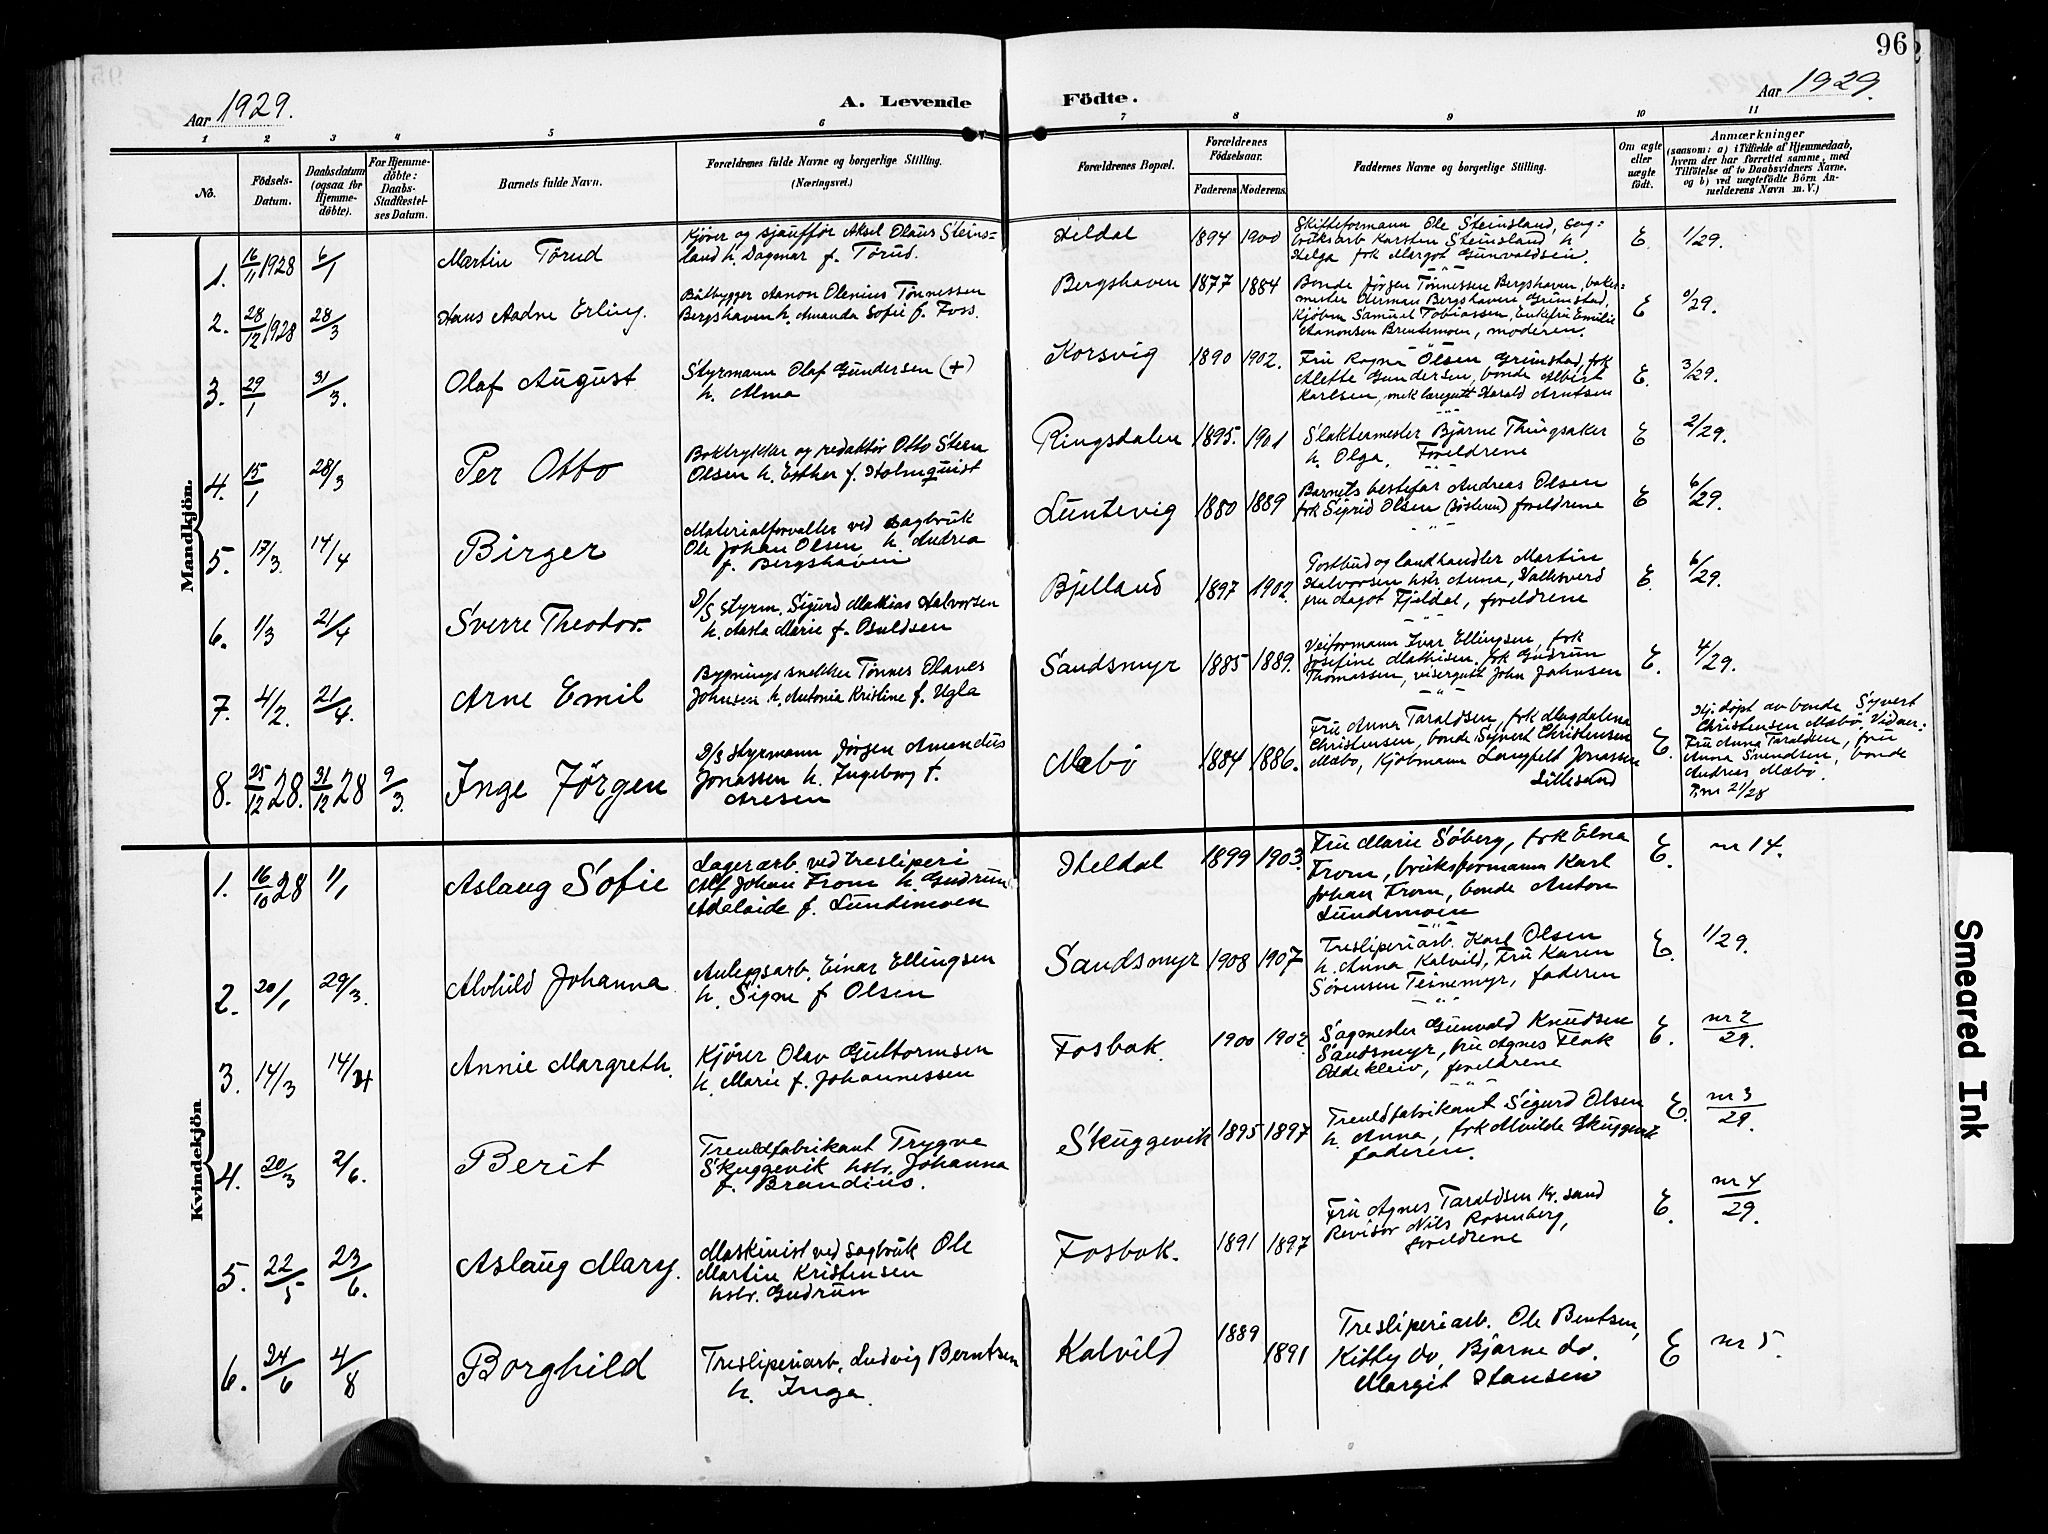 96
Aar 1929.
A. Levende Födte.
Aar 1929.
1 2 3 4 5 6 7 8 9 10 11
No.
Födsels-
Datum.
Daabsdatum
(ogsaa for
Hjemme-
döbte).
For Hjemme-
döbte:
Daabs-
Stadfæstel-
ses Datum.
Barnets fulde Navn.
Forældrenes fulde Navne og borgerlige Stilling.
(Næringsvei.)
Forældrenes Bopæl.
Forældrenes
Födselsaar.
Faderens Moderens.
Faddernes Navne og borgerlige Stilling.
Om ægte
eller
uægte
født.
Anmærkninger
(saasom: a) i Tilfælde af Hjemmedaab,
hvem der har forrettet samme, med
Tilföielse af to Daabsvidners Navne.
og b) ved uægtefödte Börn An-
melderens Navn m. V.)
Mandkjön.
1. 16/11 1928 6/1 Martin Törud
Kjører og sjauffør Aksel Olaus Steins=
land h. Dagmar f. Törud.
Heldal 1894 1900
Skifteformann Ole Steinsland,
bruksarb Karsten Steinsland h
Helga frk Margot Gunvaldsen.
E. 1/29.
2. 28/12 1928 28/3 Hans Aadne Erling.
Båtbygger Aanon Olenius Tönnessen
Bergshaven h. Amanda Sofie f. Foss.
Bergshaven 1877 1884
Bonde Jörgen Tönnessen Bergshaven,
Herman Bergshaven, Grimstad,
Kjöbm Samuel Tobiassen, Enkefru Emilie
Aanonsen Brentemoen, moderen.
E /29.
3. 29/1 31/3. Olaf August
Styrmann Olaf Gundersen (+)
h. Alma
Korsvig 1890 1902.
Fru Ragna Olsen Grimstad, frk
Alette Gundersen, bonde Albert
Karlsen, mek læregutt Harald Arntsen
E. 3/29.
4. 15/1 28/3 Per Otto
Boktrykker og redaktör Otto Stern
Olsen h. Esther f. Holmquist
Ringsdalen 1895. 1901
Slaktermester Bjarne Thingsaker
h. Olga, Foreldrene
E 2/29.
5. 17/3. 14/4 Birger
Materialforvalter ved sagbruk
Ole Johan Olsen h. Andrea
f. Bergshaven
Luntevig 1880 1889
Barnets bestefar Andreas Olsen
frk Sigrid Olsen (Söster) foreldrene
E 6/29.
6. 1/3 21/4 Sverre Theodor.
D/S styrm. Sigurd Mathias Halvorsen
h. Aasta Marie f. Osuldsen
Bjelland 1897 1902.
Postbud og landhandler Martin
Halvorsen hstr Anna, Valksverd
fru Aagot Fjeldal, foreldrene
E. 6/29.
7. 4/2. 21/4. Arne Emil
Bygningssnekker Tønnes Olaves
Johnsen h. Antonia Kristine f. Ugla
Sandsmyr 1885 1889.
Veiformann Ivar Ellingsen, frk
Josefine Mathisen, frk Gudrun
Thomassen, visergutt John Johnsen
E. 4/29.
8. 25/12 28. 31/12 28 9/3. Inge Jörgen
D/S styrmann Jörgen Amandus
Jonassen h. Ingeborg f.
Aresen
Mæbö 1884 1886.
Fru Anna Taraldsen, frk Magdalena
Christensen, bonde Syvert Christensen
Mæbo, Kjöbmann Langfelt Jonassen
Lillesand
E.
Hj.döpt av bonde Syvert
Christensen Mæbö. Vidner:
Fru Anna Taraldsen, fru
Anna Svendsen, bonde
Andreas Mæbö.
P.nr 21/28
Kvindekjön
1. 16/10 28 1/1 Aslaug Sofie
Lagerarb. ved tresliperi
Alf Johan From h. Gudrun
Adelaide f. Lundemoen
Heldal 1899 1903.
Fru Marie Söberg, frk Elna
From, bruksformann Karl
Johan From, bonde Anton
Lundemoen
E. nr 14.
2. 20/1 29/3. Alvhild Johanna
Anleggsarb. Einar Ellingsen
h. Signe f Olsen
Sandsmyr 1908 1907
Tresliperiarb. Karl Olsen
h. Anna Kalvild, Fru Karen
Sörensen Teinemyr, faderen
E. 1/29.
3. 14/3 14/4 Annie Margreth.
Kjörer Olav Guttormsen
h. Marie f. Johannessen
Fosbæk. 1900 1902
Sagmester Gunvald Knudsen
Sandsmyr, fru Agnes Flak
Oddekleiv, foreldrene
E. nr 2/29.
4. 20/3 2/6. Berit
Treuldfabrikant Trygve
Skuggevik hstr. Johanna
f. Brandius.
Skuggevik 1895 1897
Treuldfabrikant Sigurd Olsen
h. Anna, frk Alvilde Skuggevik
faderen.
E. nr 3/29.
5. 22/5 23/6. Aslaug Mary.
Maskinist ved sagbruk Ole
Martin Kristensen
hstr. Gudrun
Fosbæk. 1891 1897
Fru Agnes Taraldsen Kr.sand
Revisor Nils Rosenberg,
foreldrene
E. nr 4/29.
6. 24/6 4/8 Borghild
Tresliperiarb. Ludvig Berntsen
h. Inga
Kalvild 1889 1891
Tresliperiarb. Ole Bentsen,
Kitty do, Bjarne do.
Margit Hansen
E nr 5.
Smeared Ink